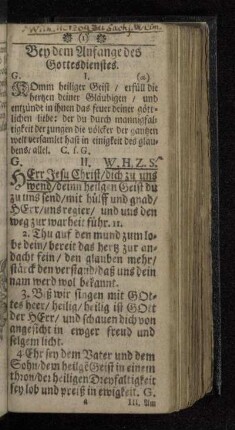 ❀ (1) ❀
Bey dem Anfange des
Gottesdienstes.
G. I. (a)
KOmm heiliger Geist / erfüll die
hertzen deiner Gläubigen / und
entzünd in ihnen das feuer deiner gött-
lichen liebe: der du durch mannigfal-
tigkeit der zungen die völcker der gantzen
welt versamlet hast in einigkeit des glau-
bens / allel. C. f. G.
G. II. W. H. Z. S.
HErr Jesu Christ / dich zu uns
wend / deinn heilgen Geist du
zu uns send / mit hülff und gnad /
HErr / uns regier / und uns den
weg zur warheit führ. ::
2. Thu auf den mund zum lo-
be dein / bereit das hertz zur an-
dacht fein / den glauben mehr /
stärck den verstand / daß uns dein
nam werd wol bekannt.
3. Biß wir singen mit GOt-
tes heer / heilig / heilig ist GOtt
der HErr / und schauen dich von
angesicht in ewger freud und
selgem licht.
4 Ehr sey dem Vater und dem
Sohn / dem heilgē Geist in einem
thron / der heiligen Dreyfaltigkeit
sey lob und preiß in ewigkeit. G.
a III. Am